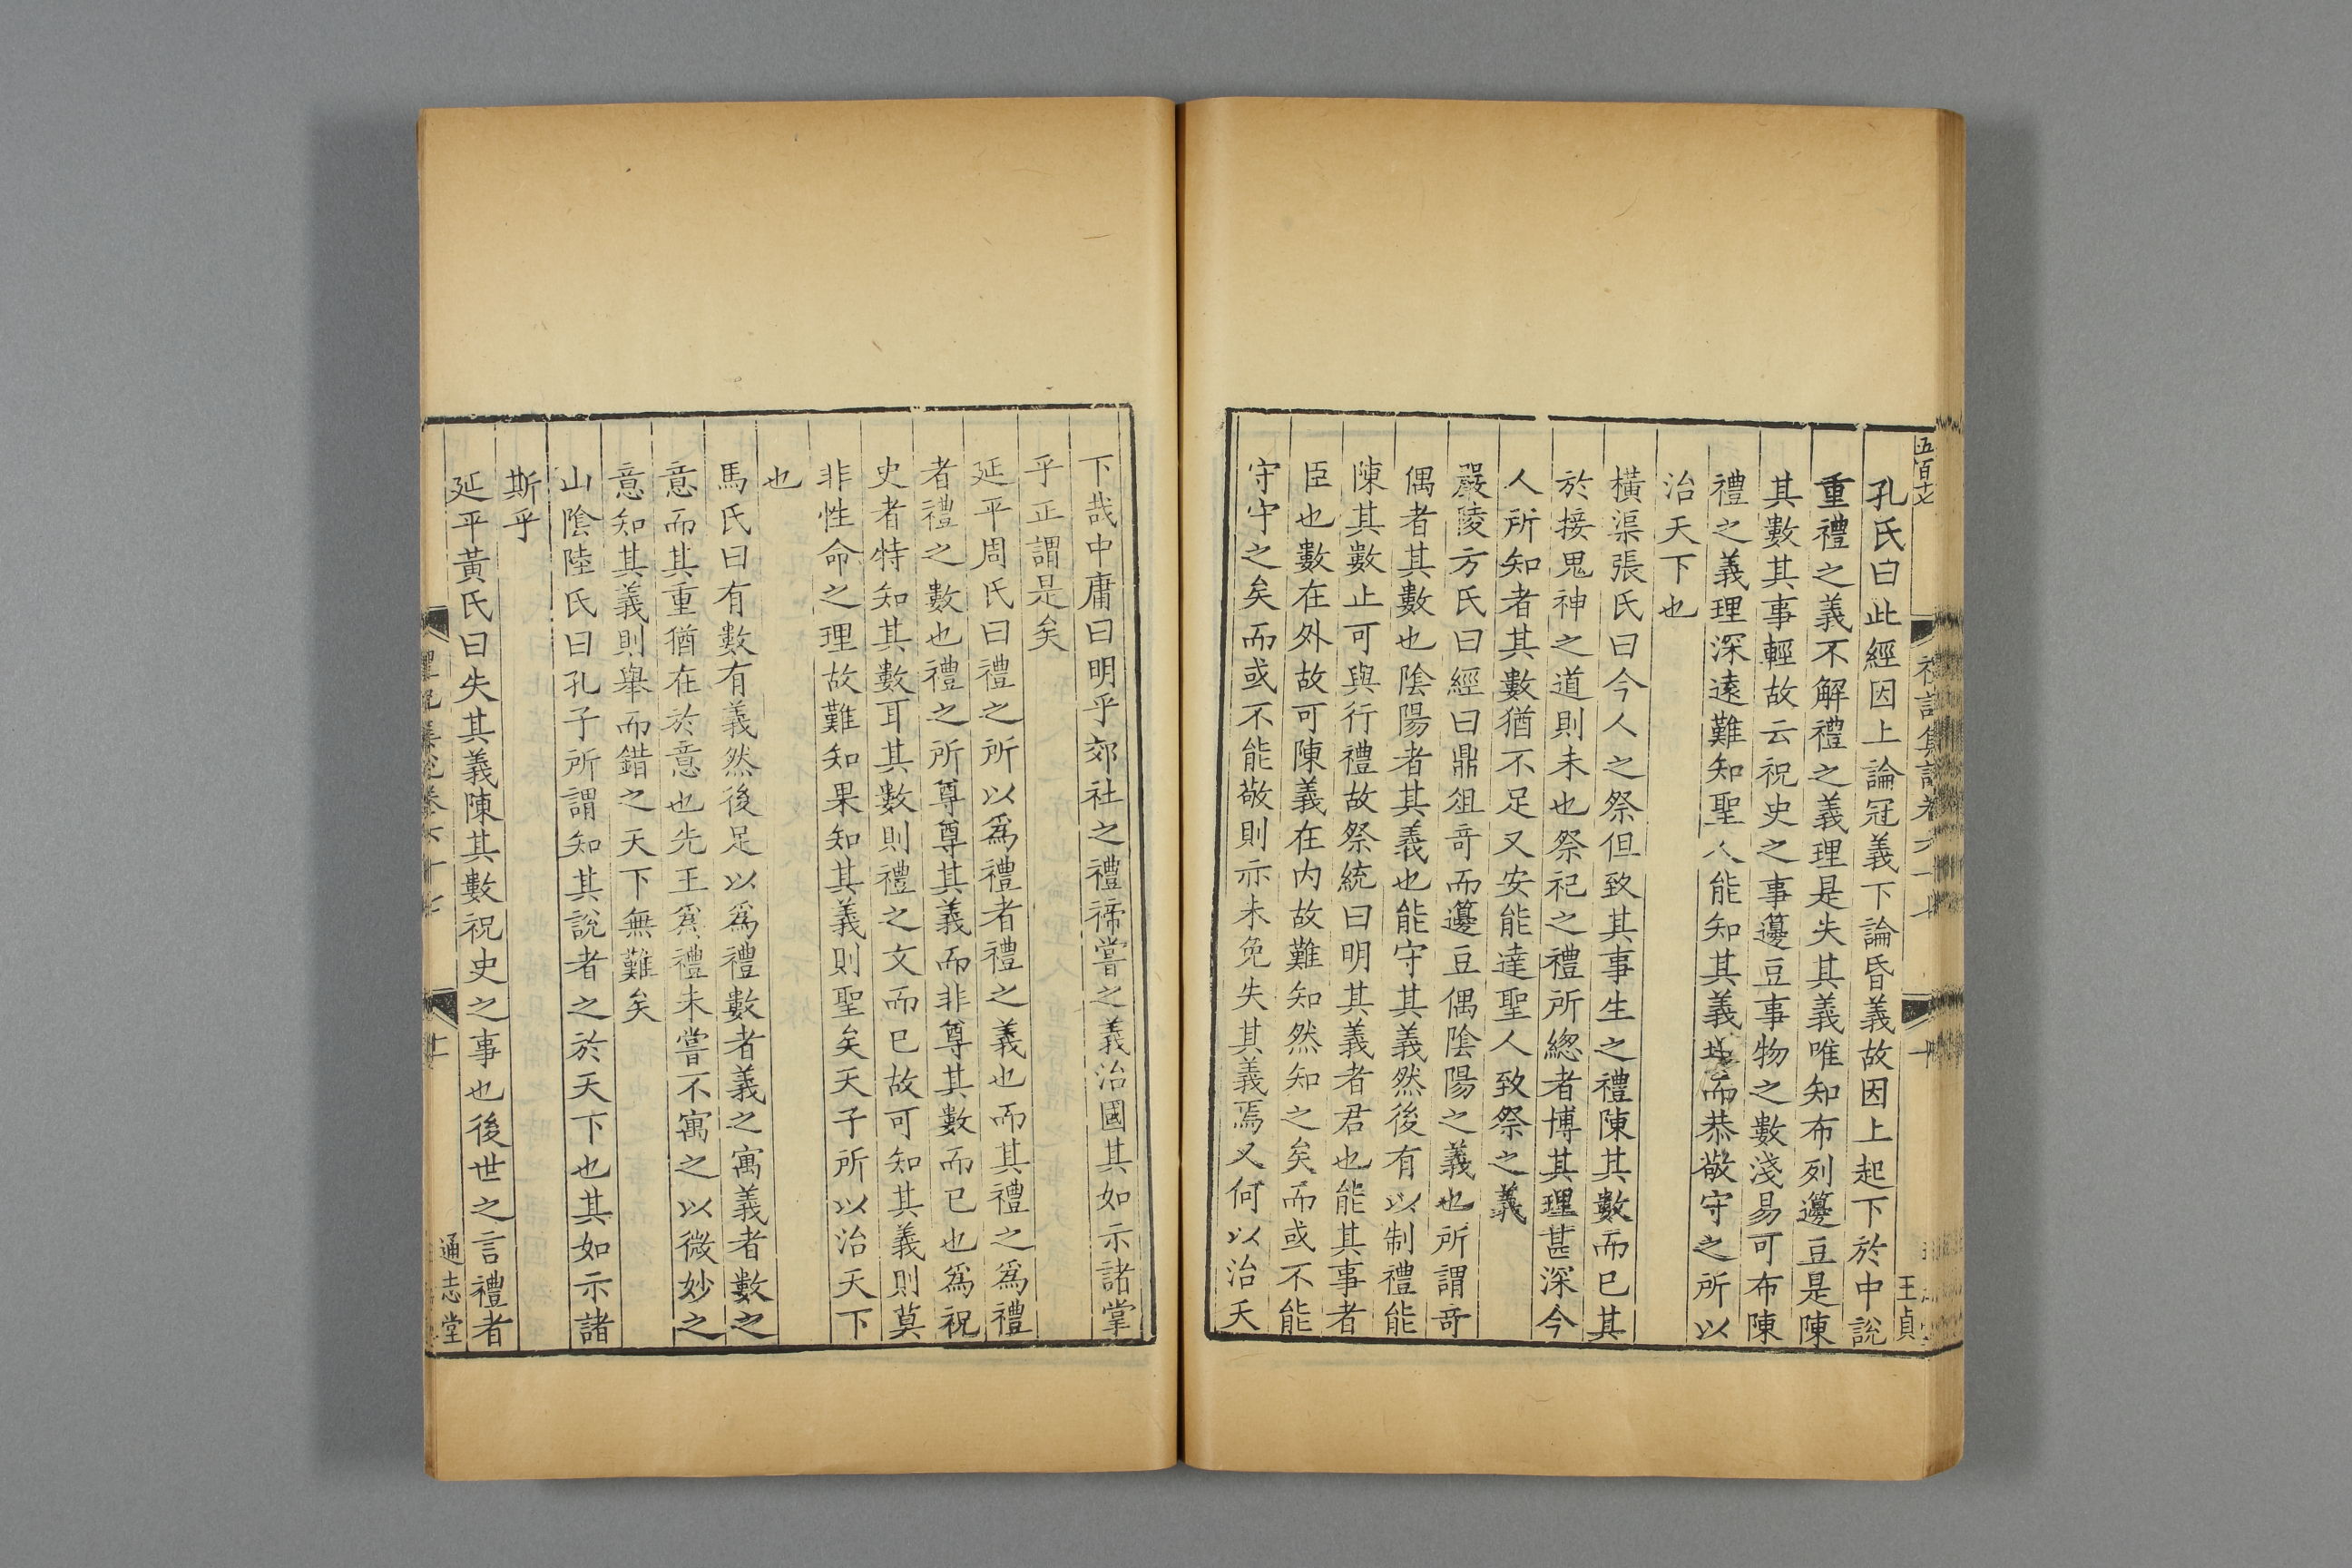 五百十七
王貞
孔氏曰此經因上論冠義下論昏義故因上起下於中說
重禮之義不解禮之義理是失其義唯知布列籩豆是陳
其數其事輕故云祝史之事籩豆事物之數淺易可布陳
禮之義理深遠難知聖人能知其義理而恭敬守之所以
治天下也
橫渠張氏曰今人之祭但致其事生之禮陳其數而已其
於接鬼神之道則未也祭祀之禮所緫者博其理甚深今
人所知者其數猶不足又安能達聖人致祭之義
嚴陵方氏曰經曰鼎俎奇而籩豆偶陰陽之義也所謂奇
偶者其數也陰陽者其義也能守其義然後有以制禮能
陳其數止可與行禮故祭統曰明其義者君也能其事者
臣也數在外故可陳義在內故難知然知之矣而或不能
守守之矣而或不能敬則亦未免失其義焉又何以治天
下哉中庸曰明乎郊社之禮禘嘗之義治國其如示諸掌
乎正謂是矣
延平周氏曰禮之所以爲禮者禮之義也而其禮之爲禮
者禮之數也禮之所尊尊其義而非尊其數而已也爲祝
史者特知其數耳其數則禮之文而已故可知其義則莫
非性命之理故難知果知其義則聖矣天子所以治天下
也
馬氏曰有數有義然後足以爲禮數者義之寓義者數之
意而其重猶在於意也先王爲禮未嘗不寓之以微妙之
意知其義則舉而錯之天下無難矣
山陰陸氏曰孔子所謂知其說者之於天下也其如示諸
斯乎
延平黃氏曰失其義陳其數祝史之事也後世之言禮者
禮記集說卷六十七
十一
通志堂